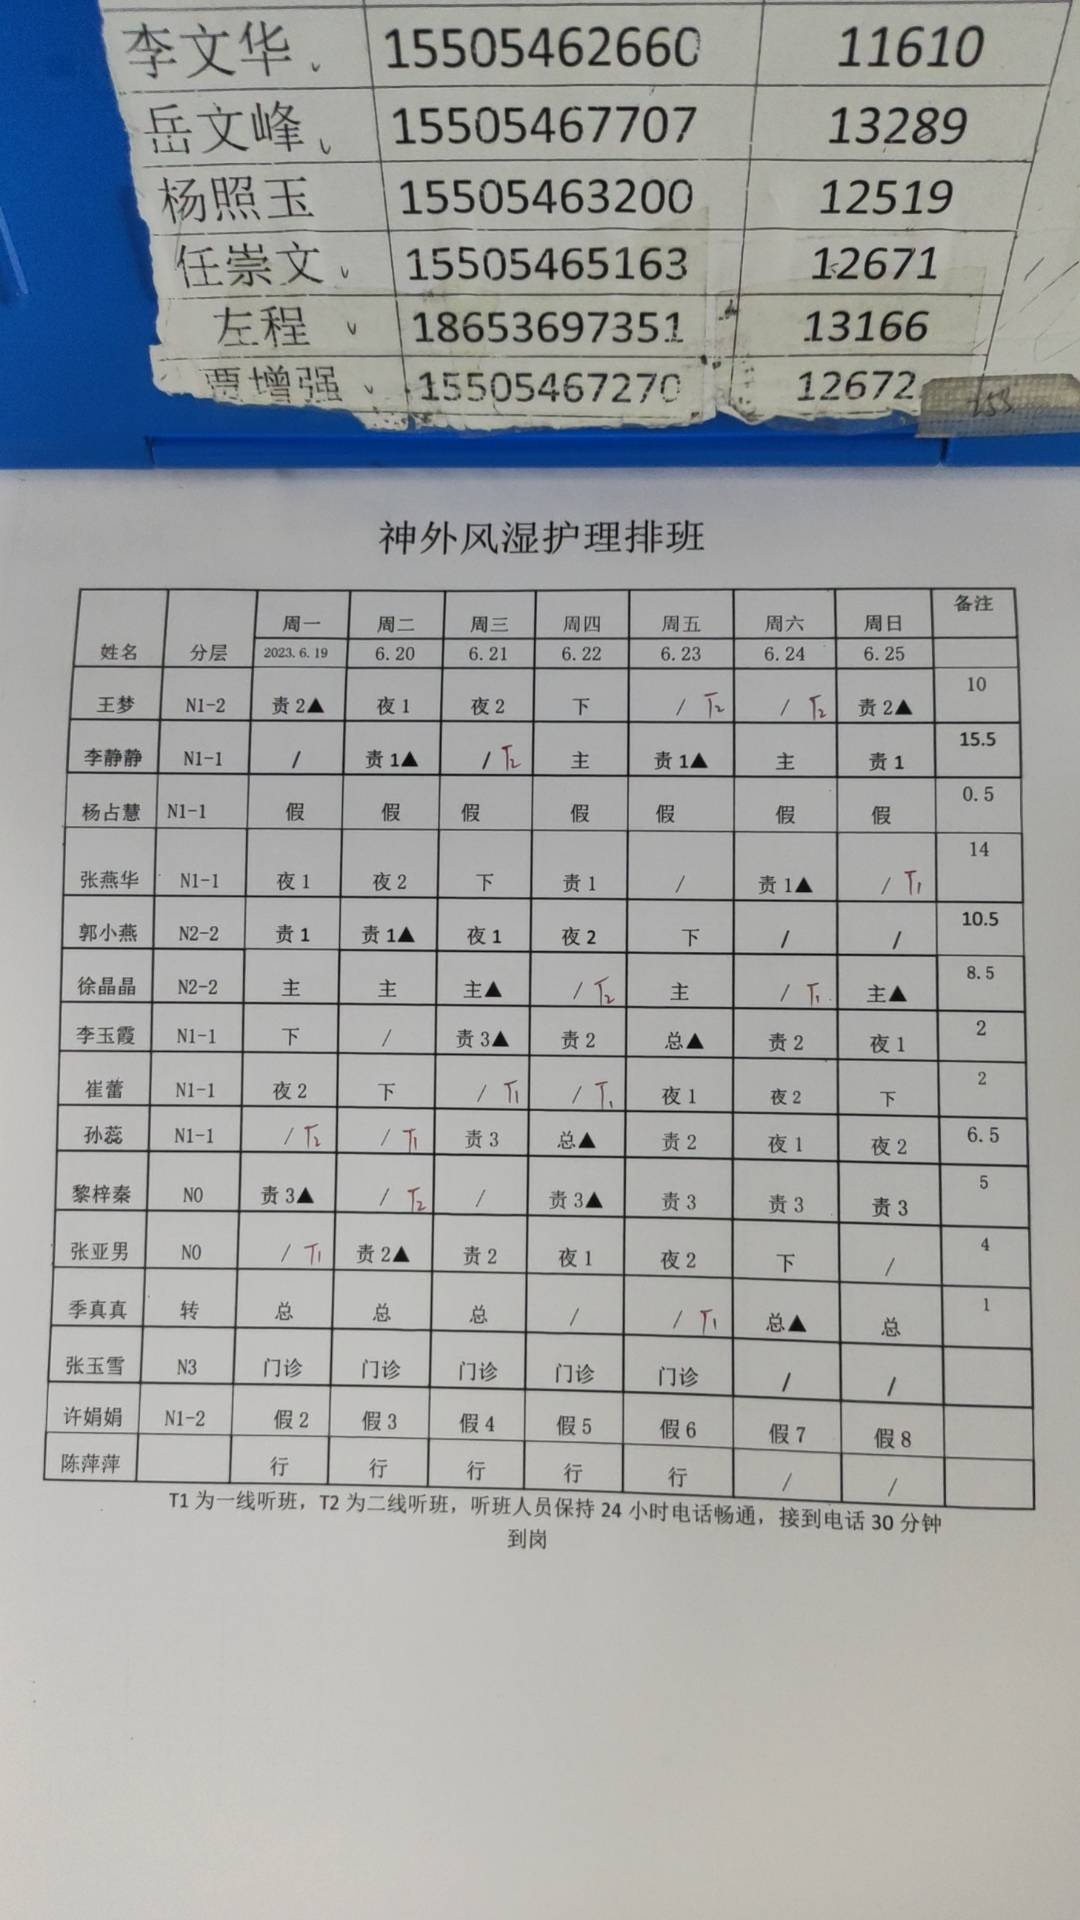 李文华 15505462660 11610
岳文峰 15505467707 13289
杨照玉 15505463200 12519
任崇文 15505465163 12671
左程 18653697351 13166
贾增强 15505467270 12672
神外风湿护理排班
姓名 分层 周一 周二 周三 周四 周五 周六 周日 备注
2023.6.19 6.20 6.21 6.22 6.23 6.24 6.25
王梦 N1-2 责2▲ 夜1 夜2 下 / T2 / T2 责2▲ 10
李静静 N1-1 / 责1▲ / T2 主 责1▲ 主 责1 15.5
杨占慧 N1-1 假 假 假 假 假 假 假 0.5
张燕华 N1-1 夜1 夜2 下 责1 / 责1▲ / T1 14
郭小燕 N2-2 责1 责1▲ 夜1 夜2 下 / / 10.5
徐晶晶 N2-2 主 主 主▲ / T2 主 / T1 主▲ 8.5
李玉霞 N1-1 下 / 责3▲ 责2 总▲ 责2 夜1 2
崔蕾 N1-1 夜2 下 / T1 / T1 夜1 夜2 下 2
孙蕊 N1-1 / T2 / T1 责3 总▲ 责2 夜1 夜2 6.5
黎梓秦 N0 责3▲ / T2 / 责3▲ 责3 责3 责3 5
张亚男 N0 / T1 责2▲ 责2 夜1 夜2 下 / 4
季真真 转 总 总 总 / / T1 总▲ 总 1
张玉雪 N3 门诊 门诊 门诊 门诊 门诊 / /
许娟娟 N1-2 假2 假3 假4 假5 假6 假7 假8
陈萍萍 行 行 行 行 行 / /
T1为一线听班，T2为二线听班，听班人员保持24小时电话畅通，接到电话30分钟
到岗